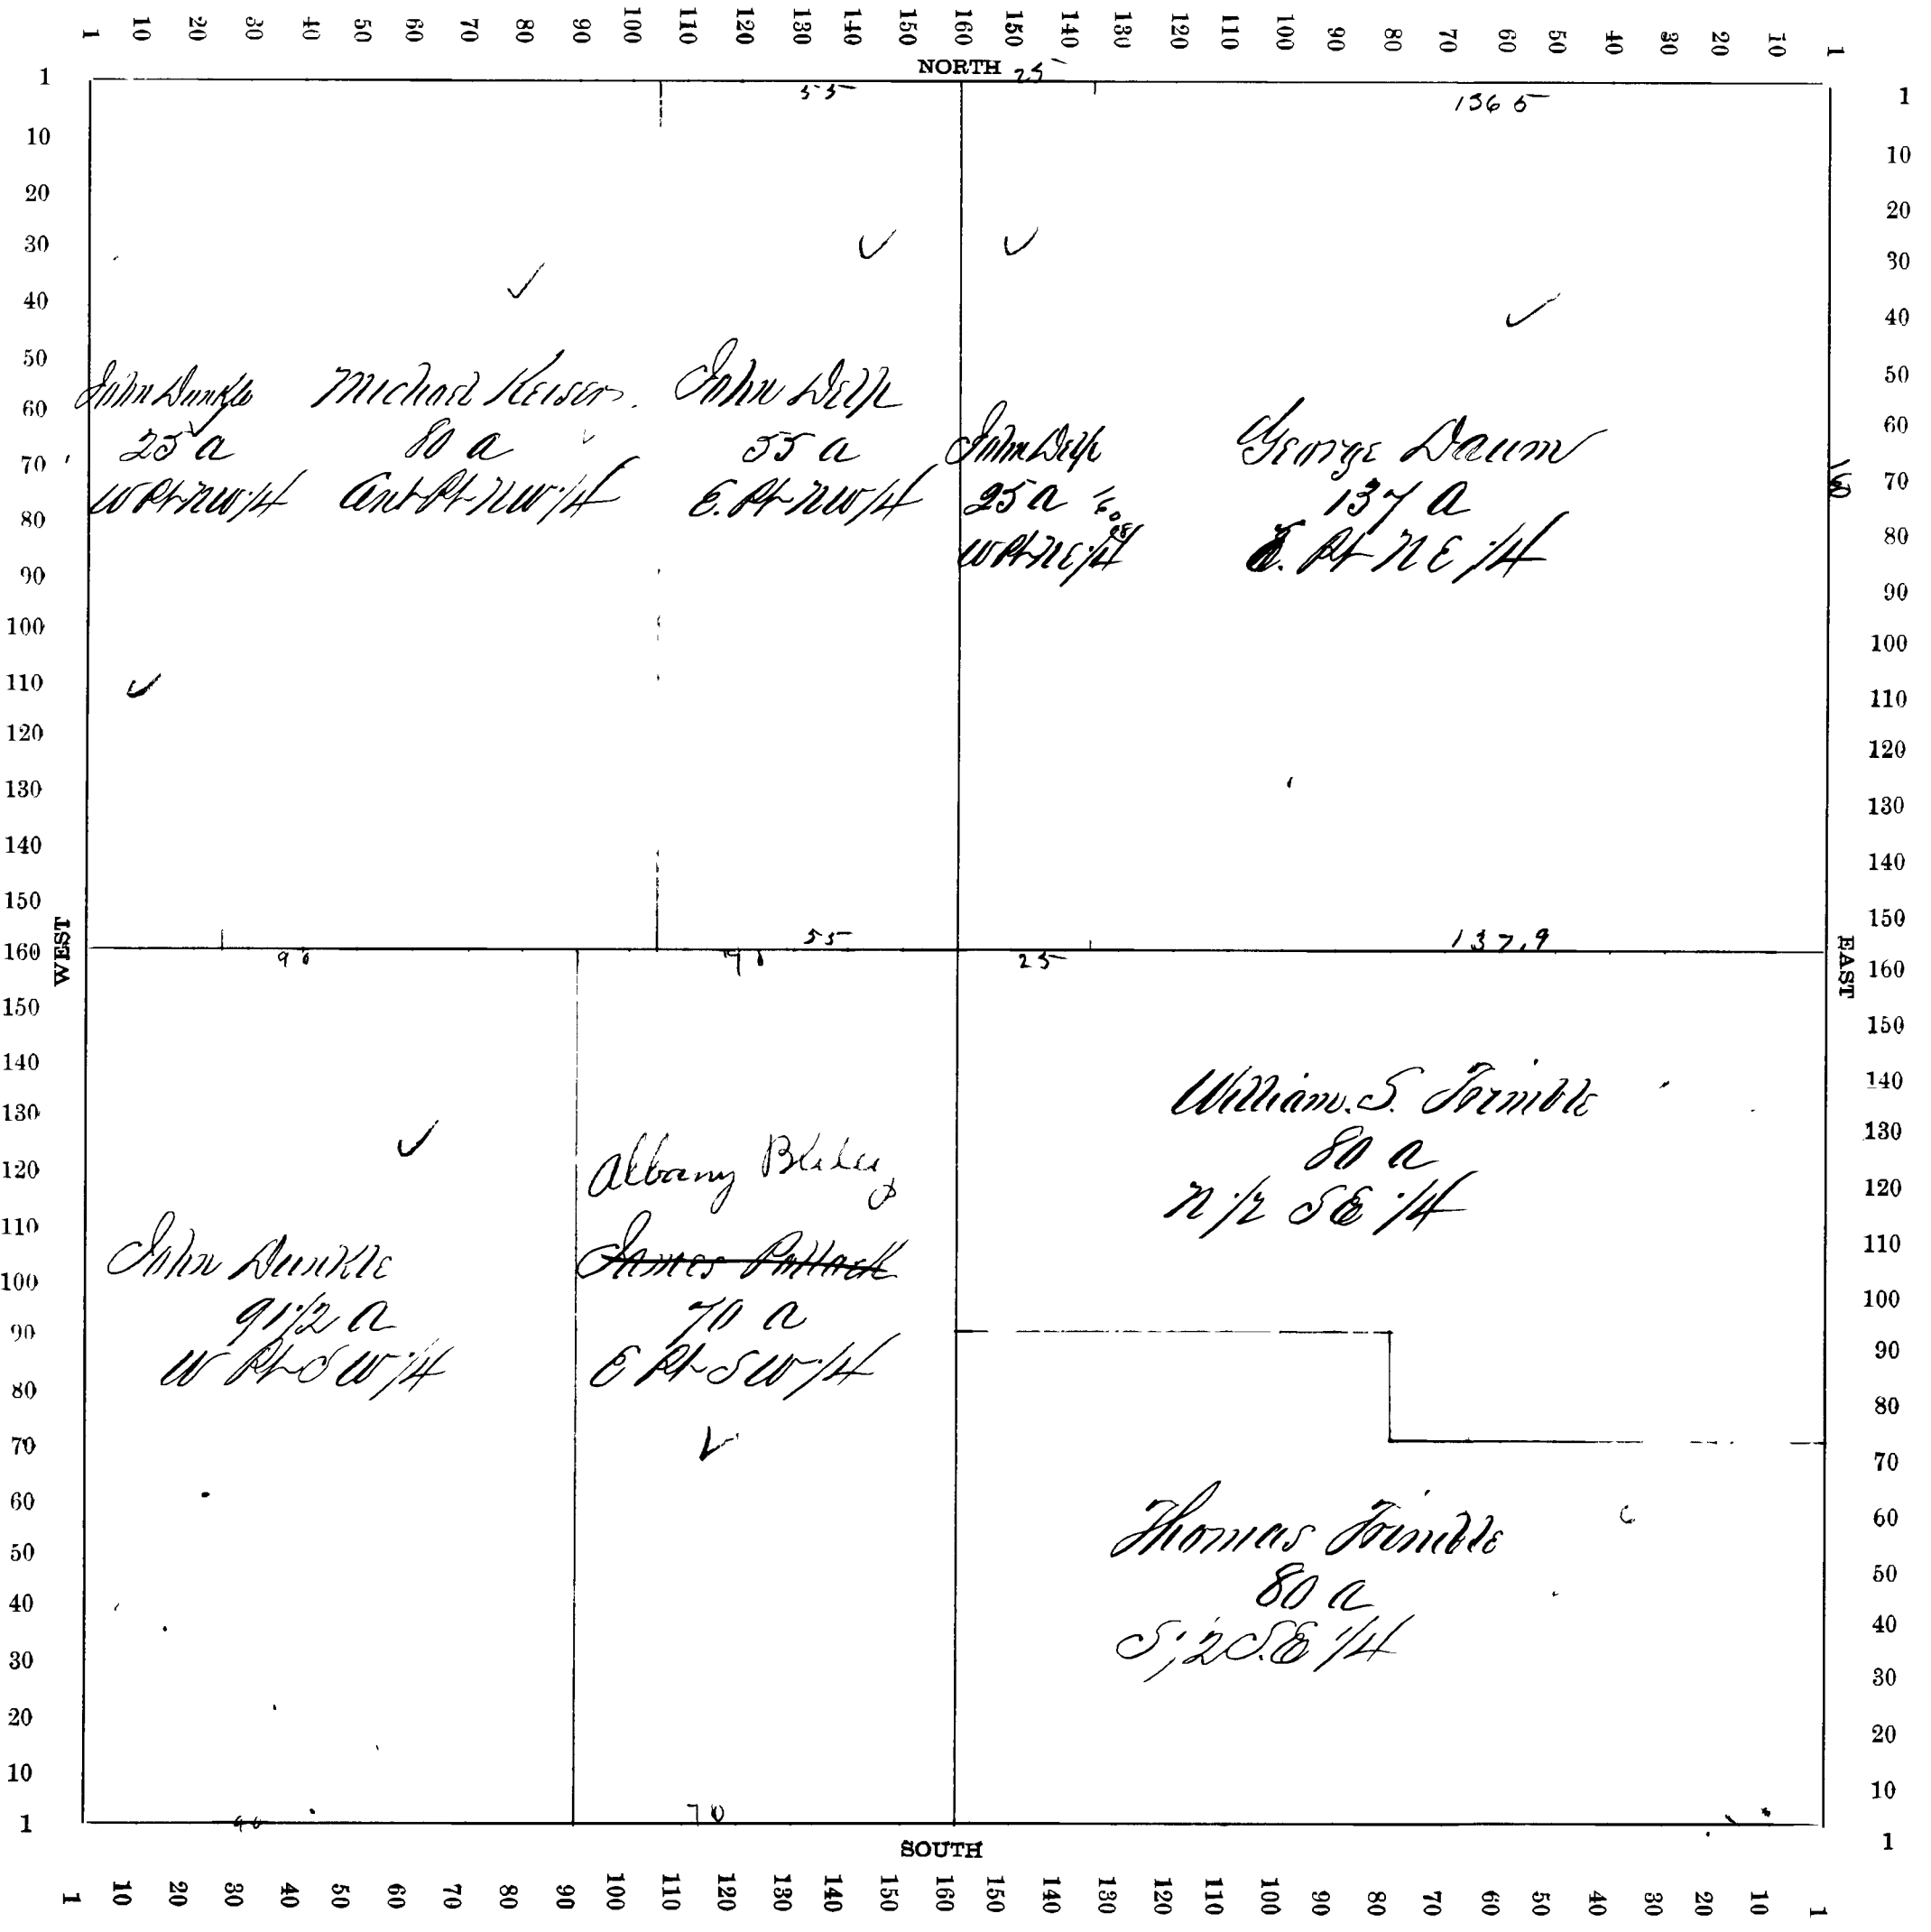 1 10 20 30 40 50 60 70 80 90 100 110 120 130 140 150 160 150 140 130 120 110 100 90 80 70 60 50 40 30 20 10 1
NORTH 25
55
1365
1 10 20 30 40 50 60 70 80 90 100 110 120 130 140 150 160 150 140 130 120 110 100 90 80 70 60 50 40 30 20 10 1
WEST
John Dunkle
25 a
W Pt NW 1/4
Michael Keiser
80 a
Cent Pt NW 1/4
John Delp
55 a
E. Pt NW 1/4
John Delp
25 a
W Pt NE 1/4
George Daum
137 a
E. Pt NE 1/4
160
55
137.9
90
70
25
John Dunkle
91 1/2 a
W Pt SW 1/4
Albany
James Pollack
70 a
E Pt SW 1/4
William. S. Trimble
80 a
N 1/2 SE 1/4
Thomas Trimble
80 a
S 1/2 S.E 1/4
90
70
EAST
1 10 20 30 40 50 60 70 80 90 100 110 120 130 140 150 160 150 140 130 120 110 100 90 80 70 60 50 40 30 20 10 1
SOUTH
1 10 20 30 40 50 60 70 80 90 100 110 120 130 140 150 160 150 140 130 120 110 100 90 80 70 60 50 40 30 20 10 1